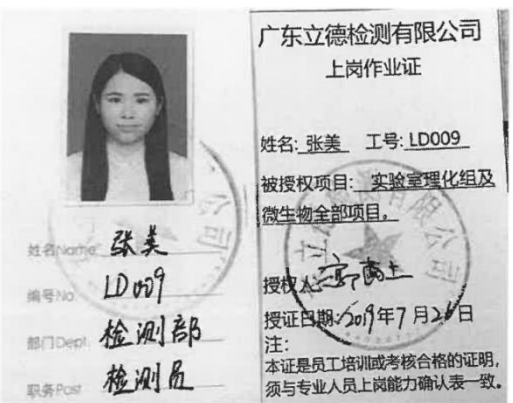 姓名Name 张美
编号No LD009
部门Dept. 检测部
职务Post 检测员
广东立德检测有限公司
上岗作业证
姓名: 张美 工号: LD009
被授权项目: 实验室理化组及
微生物全部项目。
授权人:
授证日期:2019年7月26日
注:
本证是员工培训或考核合格的证明,
须与专业人员上岗能力确认表一致。